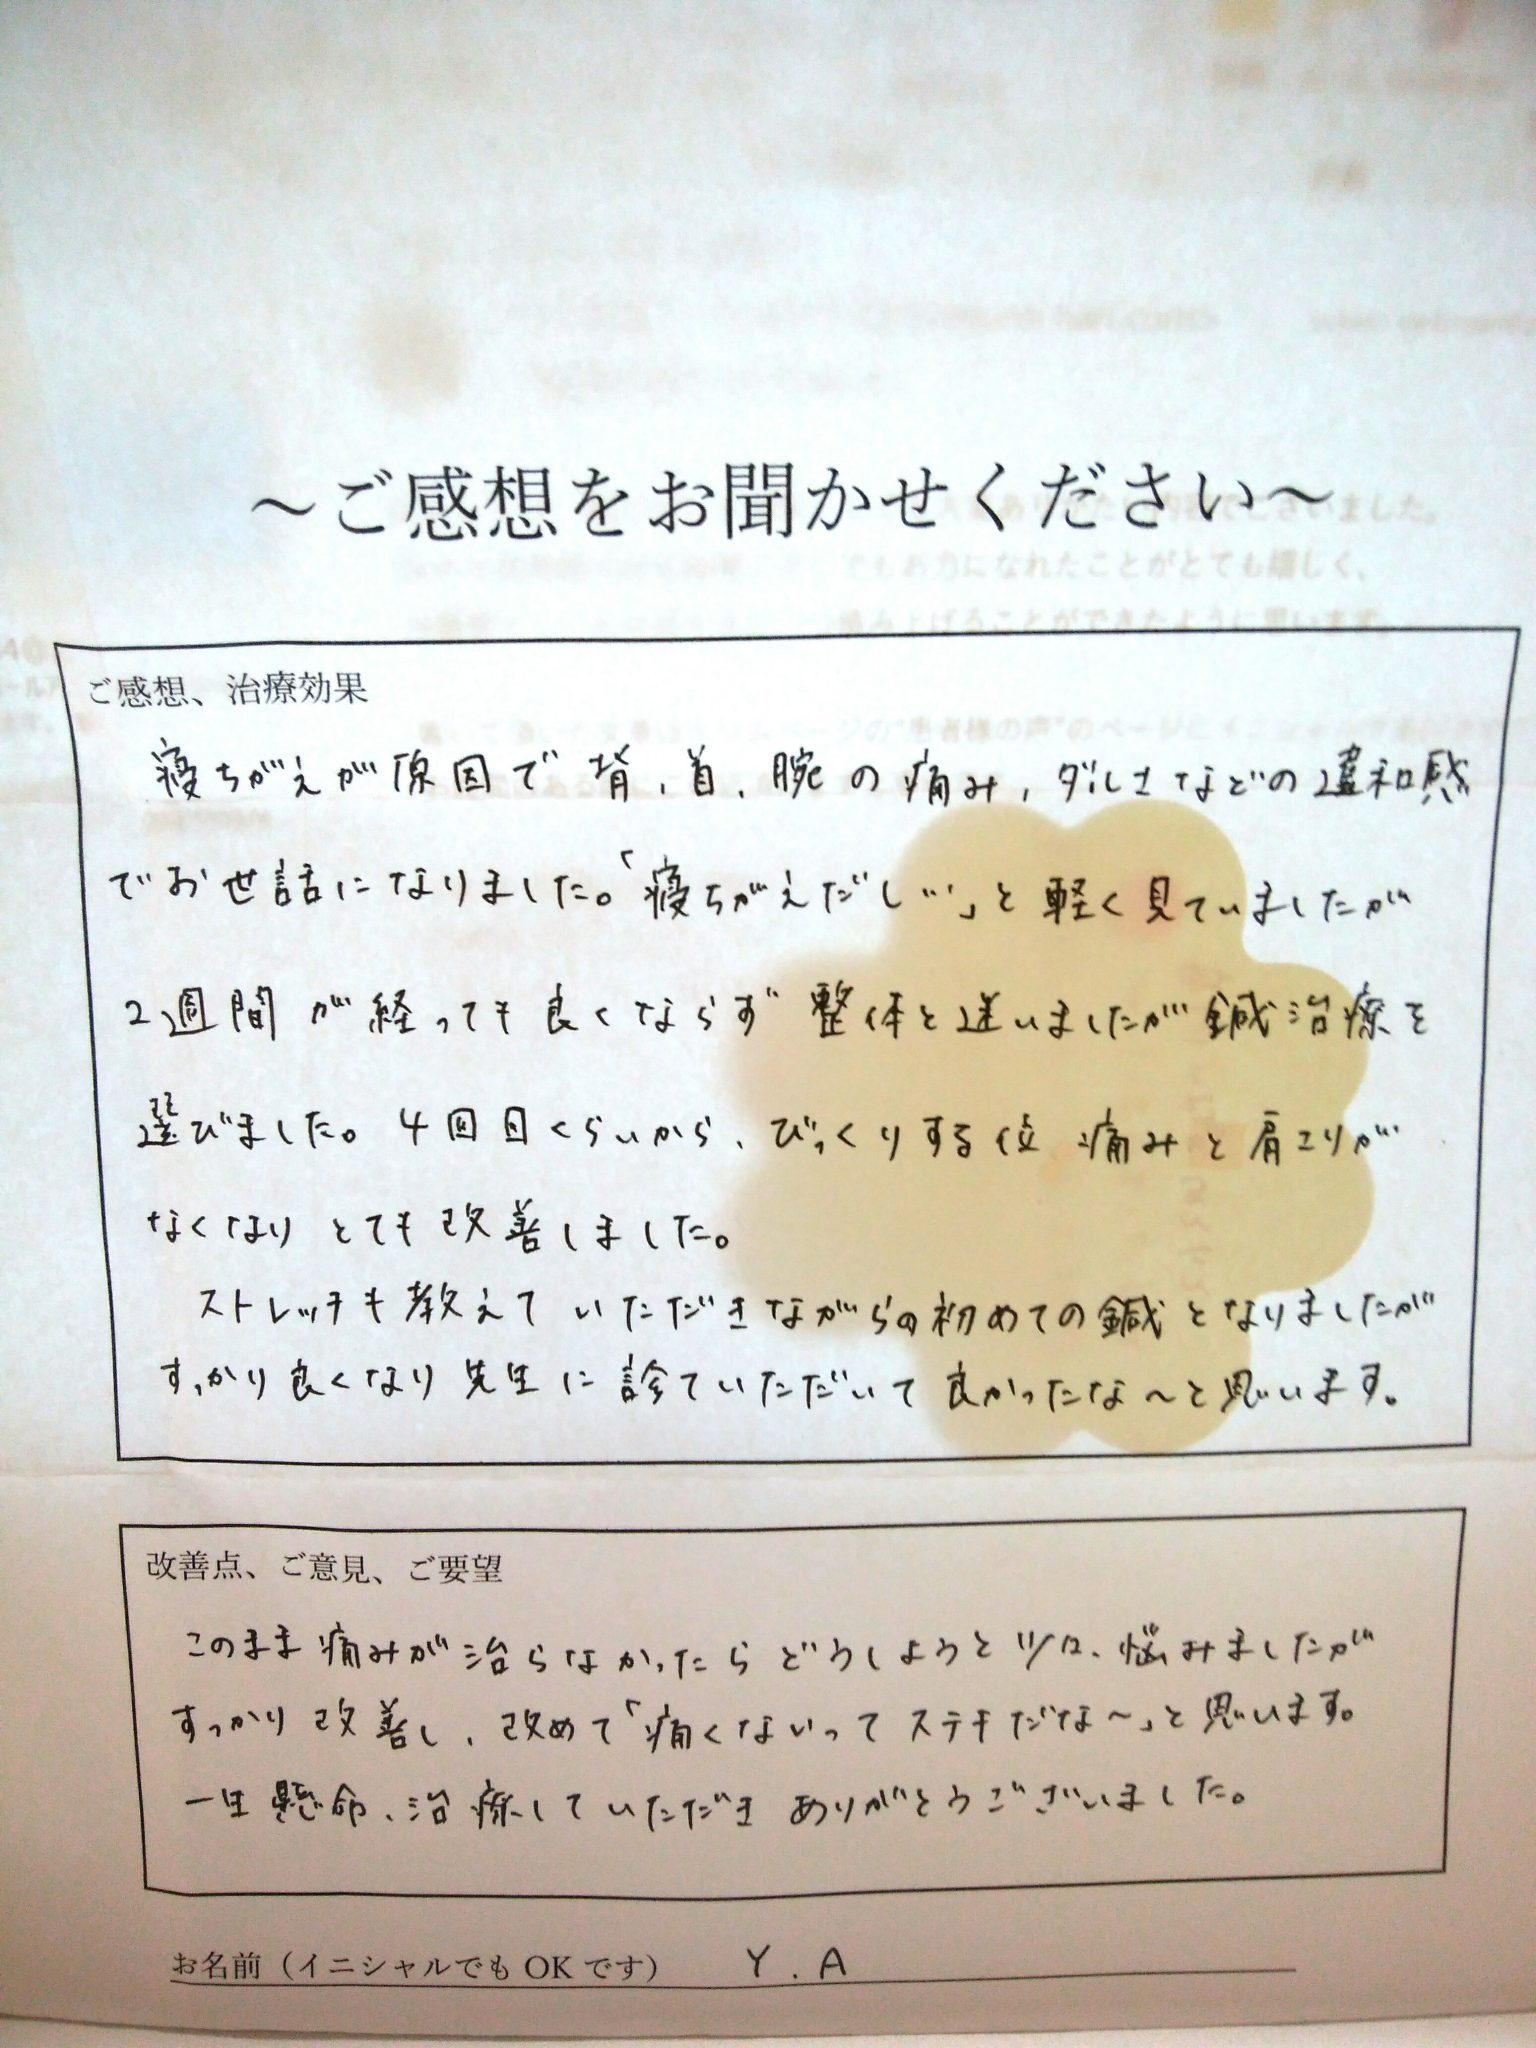 ～ご感想をお聞かせください～
ご感想、治療効果
寝ちがえが原因で背、首、腕の痛み、ダルさなどの違和感
でお世話になりました。「寝ちがえだし…」と軽く見ていましたが
2週間が経っても良くならず整体と迷いましたが鍼治療を
選びました。4回目くらいから、びっくりする位 痛みと肩こりが
なくなりとても改善しました。
ストレッチも教えていただきながらの初めての鍼となりましたが
すっかり良くなり先生に診ていただいて良かったな～と思います。
改善点、ご意見、ご要望
このまま痛みが治らなかったらどうしようとツラク、悩みましたが
すっかり改善し、改めて「痛くないってステキだな～」と思います。
一生懸命、治療していただきありがとうございました。
お名前（イニシャルでもOKです） Y.A